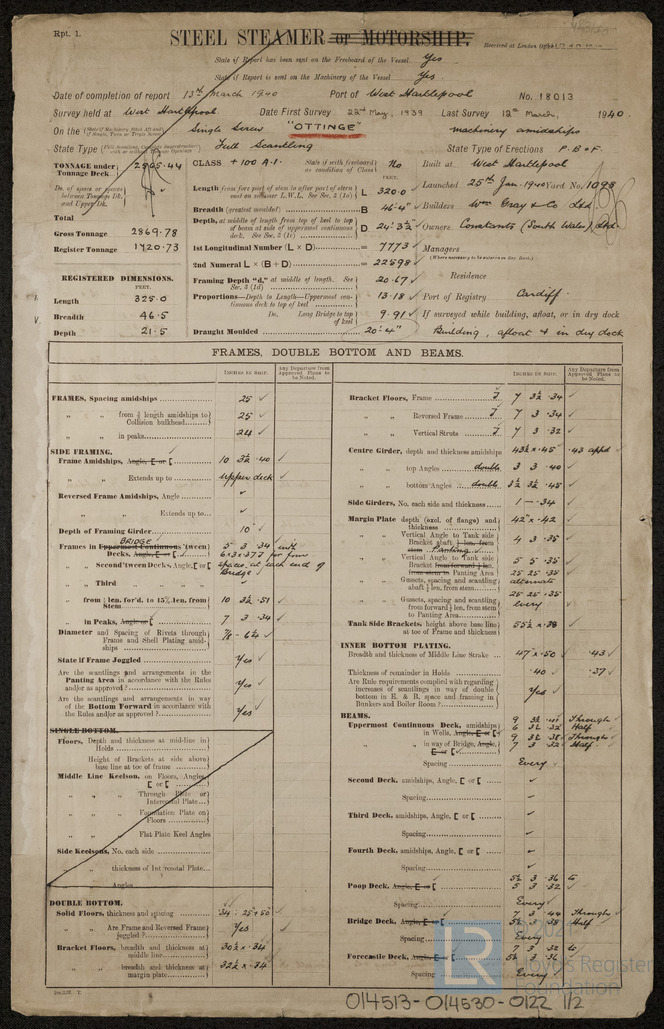 Rpt. 1.
STEEL STEAMER or MOTORSHIP.
Received at London Office
State if Report has been sent on the Freeboard of the Vessel Yes
State if Report is sent on the Machinery of the Vessel Yes
Date of completion of report 13th March 1940 Port of West Hartlepool No. 18013
Survey held at West Hartlepool Date First Survey 22nd May, 1939 Last Survey 12th March, 1940.
On the Single Screw "OTTINGE" machinery amidships
State Type Full Scantling State Type of Erections P.B & F
TONNAGE under Tonnage Deck 2595.44
CLASS +100 A.1. State if with freeboard as condition of Class No
Built at West Hartlepool
Launched 25th Jan. 1940 Yard No. 1098
Builders Wm Gray & Co Ltd
Owners Constants (South Wales) Ltd
Managers
(Where necessary to be entered in Reg. Book)
Residence
Port of Registry Cardiff
If surveyed while building, afloat, or in dry dock
Building, afloat & in dry dock
Do. of space or spaces between Tonnage Dk. and Upper Dk.
Total
Gross Tonnage 2869.78
Register Tonnage 1720.73
REGISTERED DIMENSIONS.
FEET.
Length 325.0
Breadth 46.5
Depth 21.5
Length from fore part of stem to after part of stern post on summer L.W.L. See Sec. 3 (1a) L 320.0
Breadth (greatest moulded) B 46'-4"
Depth, at middle of length from top of keel to top of beam at side of uppermost continuous deck. See Sec. 3 (1c) D 24'-3½"
1st Longitudinal Number (L × D) = 7773
2nd Numeral L × (B + D) = 22598
Framing Depth "d," at middle of length. See Sec. 3 (1d) 20.67
Proportions—Depth to Length—Uppermost continuous deck to top of keel 13.18
Do. Long Bridge to top of keel 9.91
Draught Moulded 20'-4"
FRAMES, DOUBLE BOTTOM AND BEAMS.
INCHES IN SHIP. Any Departure from Approved Plans to be Noted.
FRAMES, Spacing amidships 25
" " from ⅗ length amidships to Collision bulkhead 25
" " in peaks 24
SIDE FRAMING.
Frame Amidships, Angle, E or [ 10 3½ .40
" " Extends up to Upper deck
Reversed Frame Amidships, Angle
" " Extends up to
Depth of Framing Girder 10
Frames in Uppermost Continuous 'tween Decks, Angle, E or [ BRIDGE 5 3 .34 with
6×3×.37 for four
" " Second 'tween Decks, Angle, [ or [ spaces at each end of
Bridge
" " Third " "
" " from ⅕ len. for'd. to 15% len. from Stem 10 3½ .51
" " in Peaks, Angle or [ 7 3 .34
Diameter and Spacing of Rivets through Frame and Shell Plating amidships ⅞ - 6⅛
State if Frame Joggled Yes
Are the scantlings and arrangements in the Panting Area in accordance with the Rules and/or as approved? Yes
Are the scantlings and arrangements in way of the Bottom Forward in accordance with the Rules and/or as approved? Yes
SINGLE BOTTOM.
Floors, Depth and thickness at mid-line in Holds
Height of Brackets at side above base line at toe of frame
Middle Line Keelson, on Floors, Angles, [ or [
" " " Through Plate or Intercostal Plate
" " " Foundation Plate on Floors
" " " Flat Plate Keel Angles
Side Keelsons, No. each side
" " thickness of Intercostal Plate
" " Angles
DOUBLE BOTTOM.
Solid Floors, thickness and spacing .34 - 25 & 50
" " Are Frame and Reversed Frame joggled? Yes
Bracket Floors, breadth and thickness at middle line 30½ × .34
" " breadth and thickness at margin plate 32½ × .34
INCHES IN SHIP. Any Departure from Approved Plans to be Noted.
Bracket Floors, Frame 7 3½ .34
" " Reversed Frame 7 3 .34
" " Vertical Struts 7 3 .32
Centre Girder, depth and thickness amidships 43½ × .45 .43 appd
" " top Angles double 3 3 .40
" " bottom Angles double 3½ 3½ .45
Side Girders, No. each side and thickness 1 - .34
Margin Plate depth (excl. of flange) and thickness 42" × .42
" " Vertical Angle to Tank side Bracket abaft ¼ len. from stem Panting 4 3 .35
" " Vertical Angle to Tank side Bracket from forward ¼ len. from stem to Panting Area 5 5 .35
" " Gussets, spacing and scantling abaft ¼ len. from stem 25 25 .35
alternate
" " Gussets, spacing and scantling from forward ¼ len. from stem to Panting Area 25 25 .35
every
Tank Side Brackets, height above base line at toe of Frame and thickness 55½ × .38
INNER BOTTOM PLATING.
Breadth and thickness of Middle Line Strake 47" × .50 .43
Thickness of remainder in Holds .40 .37
Are Rule requirements complied with regarding increases of scantlings in way of double bottom in E. & B. space and framing in Bunkers and Boiler Room? Yes
BEAMS.
Uppermost Continuous Deck, amidships in Wells, Angle, E or [ 9 3½ .41 Through
6 3½ .32 Half
" " in way of Bridge, Angle, E or [ 9 3½ .38 Through
7 3 .32 Half
Spacing Every
Second Deck, amidships, Angle, [ or [
Spacing
Third Deck, amidships, Angle, [ or [
Spacing
Fourth Deck, amidships, Angle, [ or [
Spacing
Poop Deck, Angle, E or [ 5½ 3 .36 to
5 3 .32
Spacing Every
Bridge Deck, Angle, E or [ 7 3 .44 Through
Half
Spacing Every
Forecastle Deck, Angle, E or [ 7 3 .32 to
Spacing Every
LR
© 2021
Lloyd's Register
Foundation
014513-014530-0122 1/2